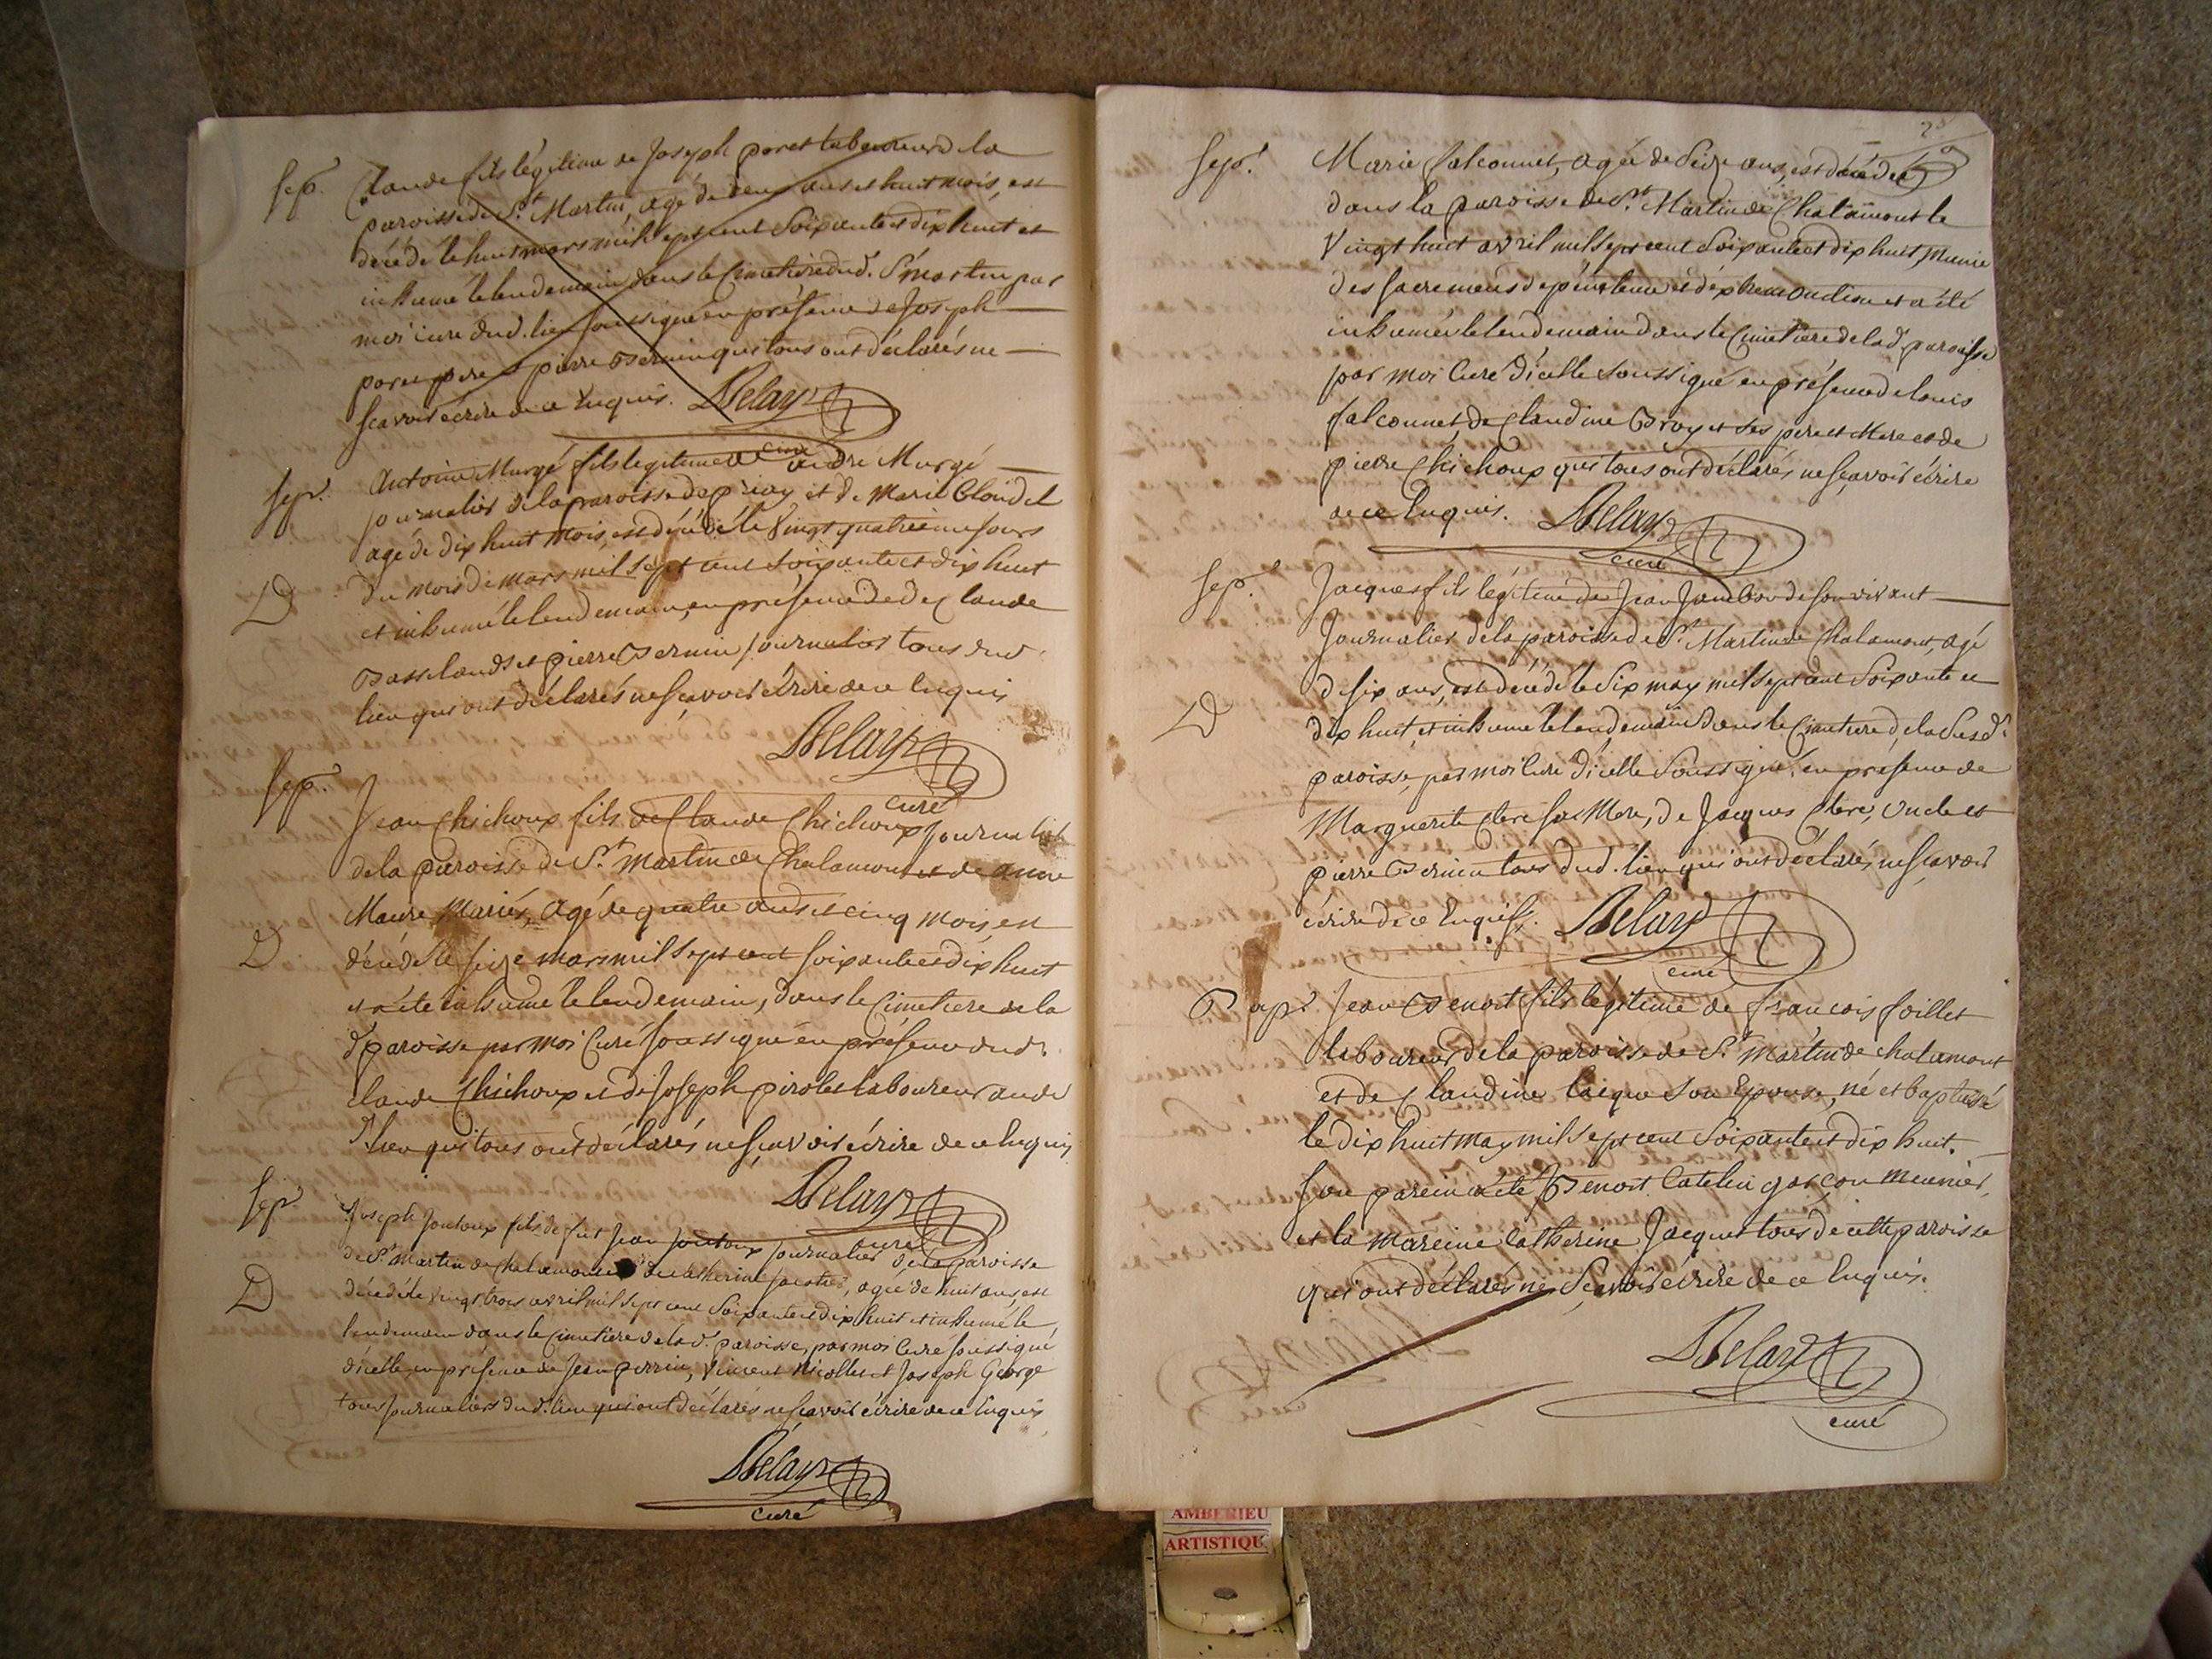 Sep.
Claude fils légitime de Joseph poret laboureur de la
paroisse de St. Martin, agé de deux ans et huit mois, est
décédé le huit mars mil sept cent soixante et dix huit et
inhumé le lendemain dans le Cimetiere dud. St martin par
moi curé dud. lieu soussigné en présence de Joseph
poret pere et pierre Bernin qui tous ont déclarés ne
scavoir écrire de ce Enquis. Delay
curé
Sep.
Antoine Murgé fils legitime d' andré Murgé
journalier de la paroisse de et de Marie
agé de dix huit mois, est décédé le Vingt quatrieme jour
D
du mois de mars mil sept cent soixante et dix huit
et inhumé le lendemain, en présence de de Claude
et pierre Bernin journalier tous dud.
lieu qui ont déclarés ne scavoir écrire de ce Enquis
Delay
curé
Sep.
Jean Chichoux fils de Claude Chichoux journalier
de la paroisse de St. martin de Chalamont et de anne
Maure Mariés, agé de quatre ans et cinq mois, est
D
décédé le seize mars mil sept cent soixante et dix huit
et a été inhumé le lendemain, dans le Cimetiere de la
d. paroisse par moi Curé soussigné en présence dud.
claude Chichoux et de Joseph pirolet laboureur aud.
lieu qui tous ont déclarés ne scavoir écrire de ce Enquis
Delay
curé
Sep.
Joseph Joutoux fils de fut Jean Joutoux journalier de la paroisse
de St martin de Chalamont et de Catherine, agé de huit ans, est
D
décédé le vingt trois avril mil sept cent soixante et dix huit et inhumé le
lendemain dans le Cimetiere de la d. paroisse, par moi Curé soussigné
d'icelle, en présence de Jean perrin, Vincent Nicollet et Joseph George
tous journaliers dud. lieu qui ont déclarés ne scavoir écrire de ce Enquis
Delay
curé
Sep.
Marie falconnet, agée de seize ans, est décédée
dans la paroisse de St. Martin de Chalamont le
Vingt huit avril mil sept cent soixante et dix huit, munie
des sacremens de pénitence et d'extreme onction et a été
inhumée le lendemain dans le Cimetiere de lad. paroisse
par moi Curé d'icelle soussigné en présence de louis
falconnet, de Claudine Bray et ses pere et Mere et de
pierre Chichoux qui tous ont déclarés ne scavoir écrire
de ce Enquis. Delay
curé
Sep.
Jacques fils légitime de Jean Jambon de son vivant
Journalier de la paroisse de St. Martin de Chalamont, agé
de six ans, est décédé le six may mil sept cent soixante et
D
dix huit, et inhumé le lendemain dans le Cimetiere de la susd.
paroisse, par moi Curé d'icelle soussigné, en présence de
Marguerite Clere sa Mere, de Jacques Clere, oncle et
pierre Bernin tous dud. lieu qui ont déclarés ne scavoir
écrire de ce Enquis. Delay
curé
Bap.
Jean Benoit fils légitime de françois foillet
laboureur de la paroisse de St martin de chalamont
et de Claudine son Epouse, né et baptisé
le dix huit may mil sept cent soixante et dix huit.
son parein a été Benoit Catelin garçon meunier
et la mareine Catherine Jacquet tous de cette paroisse
qui ont déclarés ne scavoir écrire de ce Enquis.
Delay
curé
AMBERIEU
ARTISTIQU